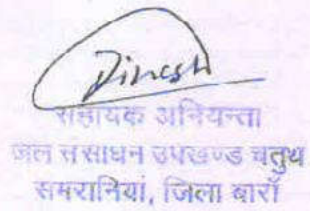 Dinesh
सहायक अभियन्ता
जल संसाधन उपखण्ड चतुथ
समरानियां, जिला बाराँ